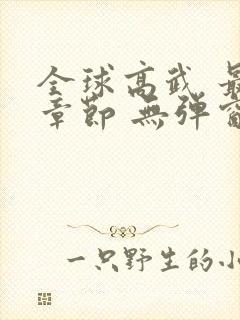 全球高武 最
章節 無彈窗
一只野生的小